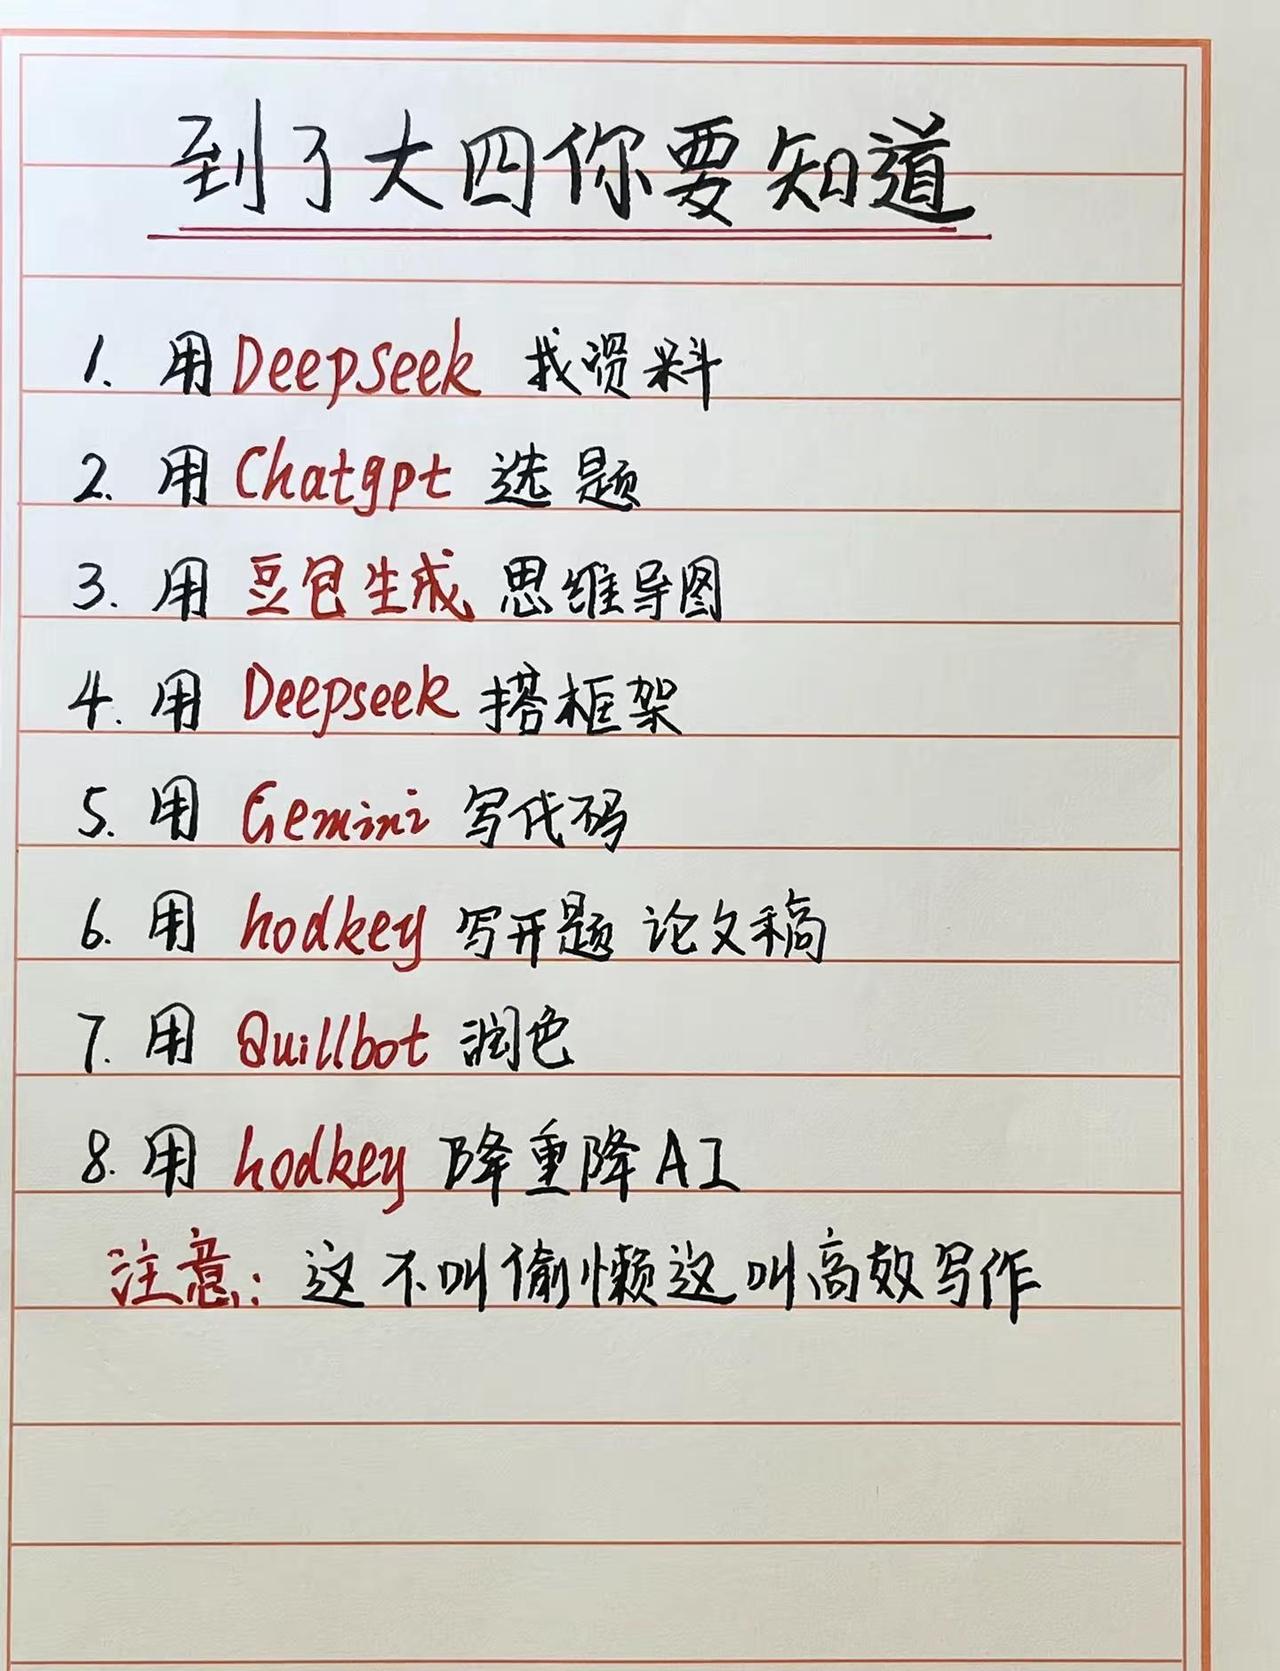 到了大四你要知道
1. 用DeepSeek 找资料
2. 用Chatgpt 选题
3. 用豆包生成 思维导图
4. 用 Deepseek 搭框架
5. 用 Gemini 写代码
6. 用 hodkey 写开题 论文稿
7. 用 Quillbot 润色
8. 用 hodkey 降重降AI
注意: 这不叫偷懒这叫高效写作